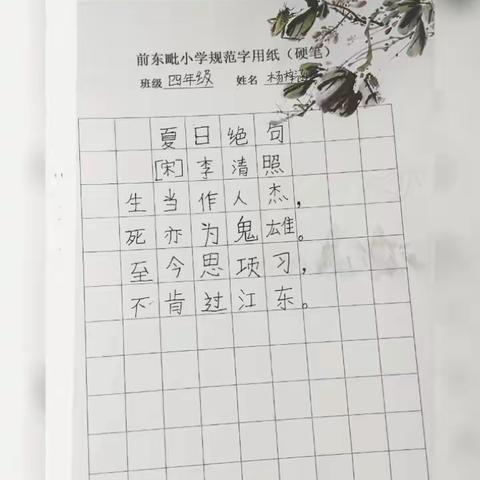 前东毗小学规范字用纸（硬笔）
班级 四年级 姓名 杨梓
夏日绝句
[宋]李清照
生当作人杰，
死亦为鬼雄。
至今思项习，
不肯过江东。